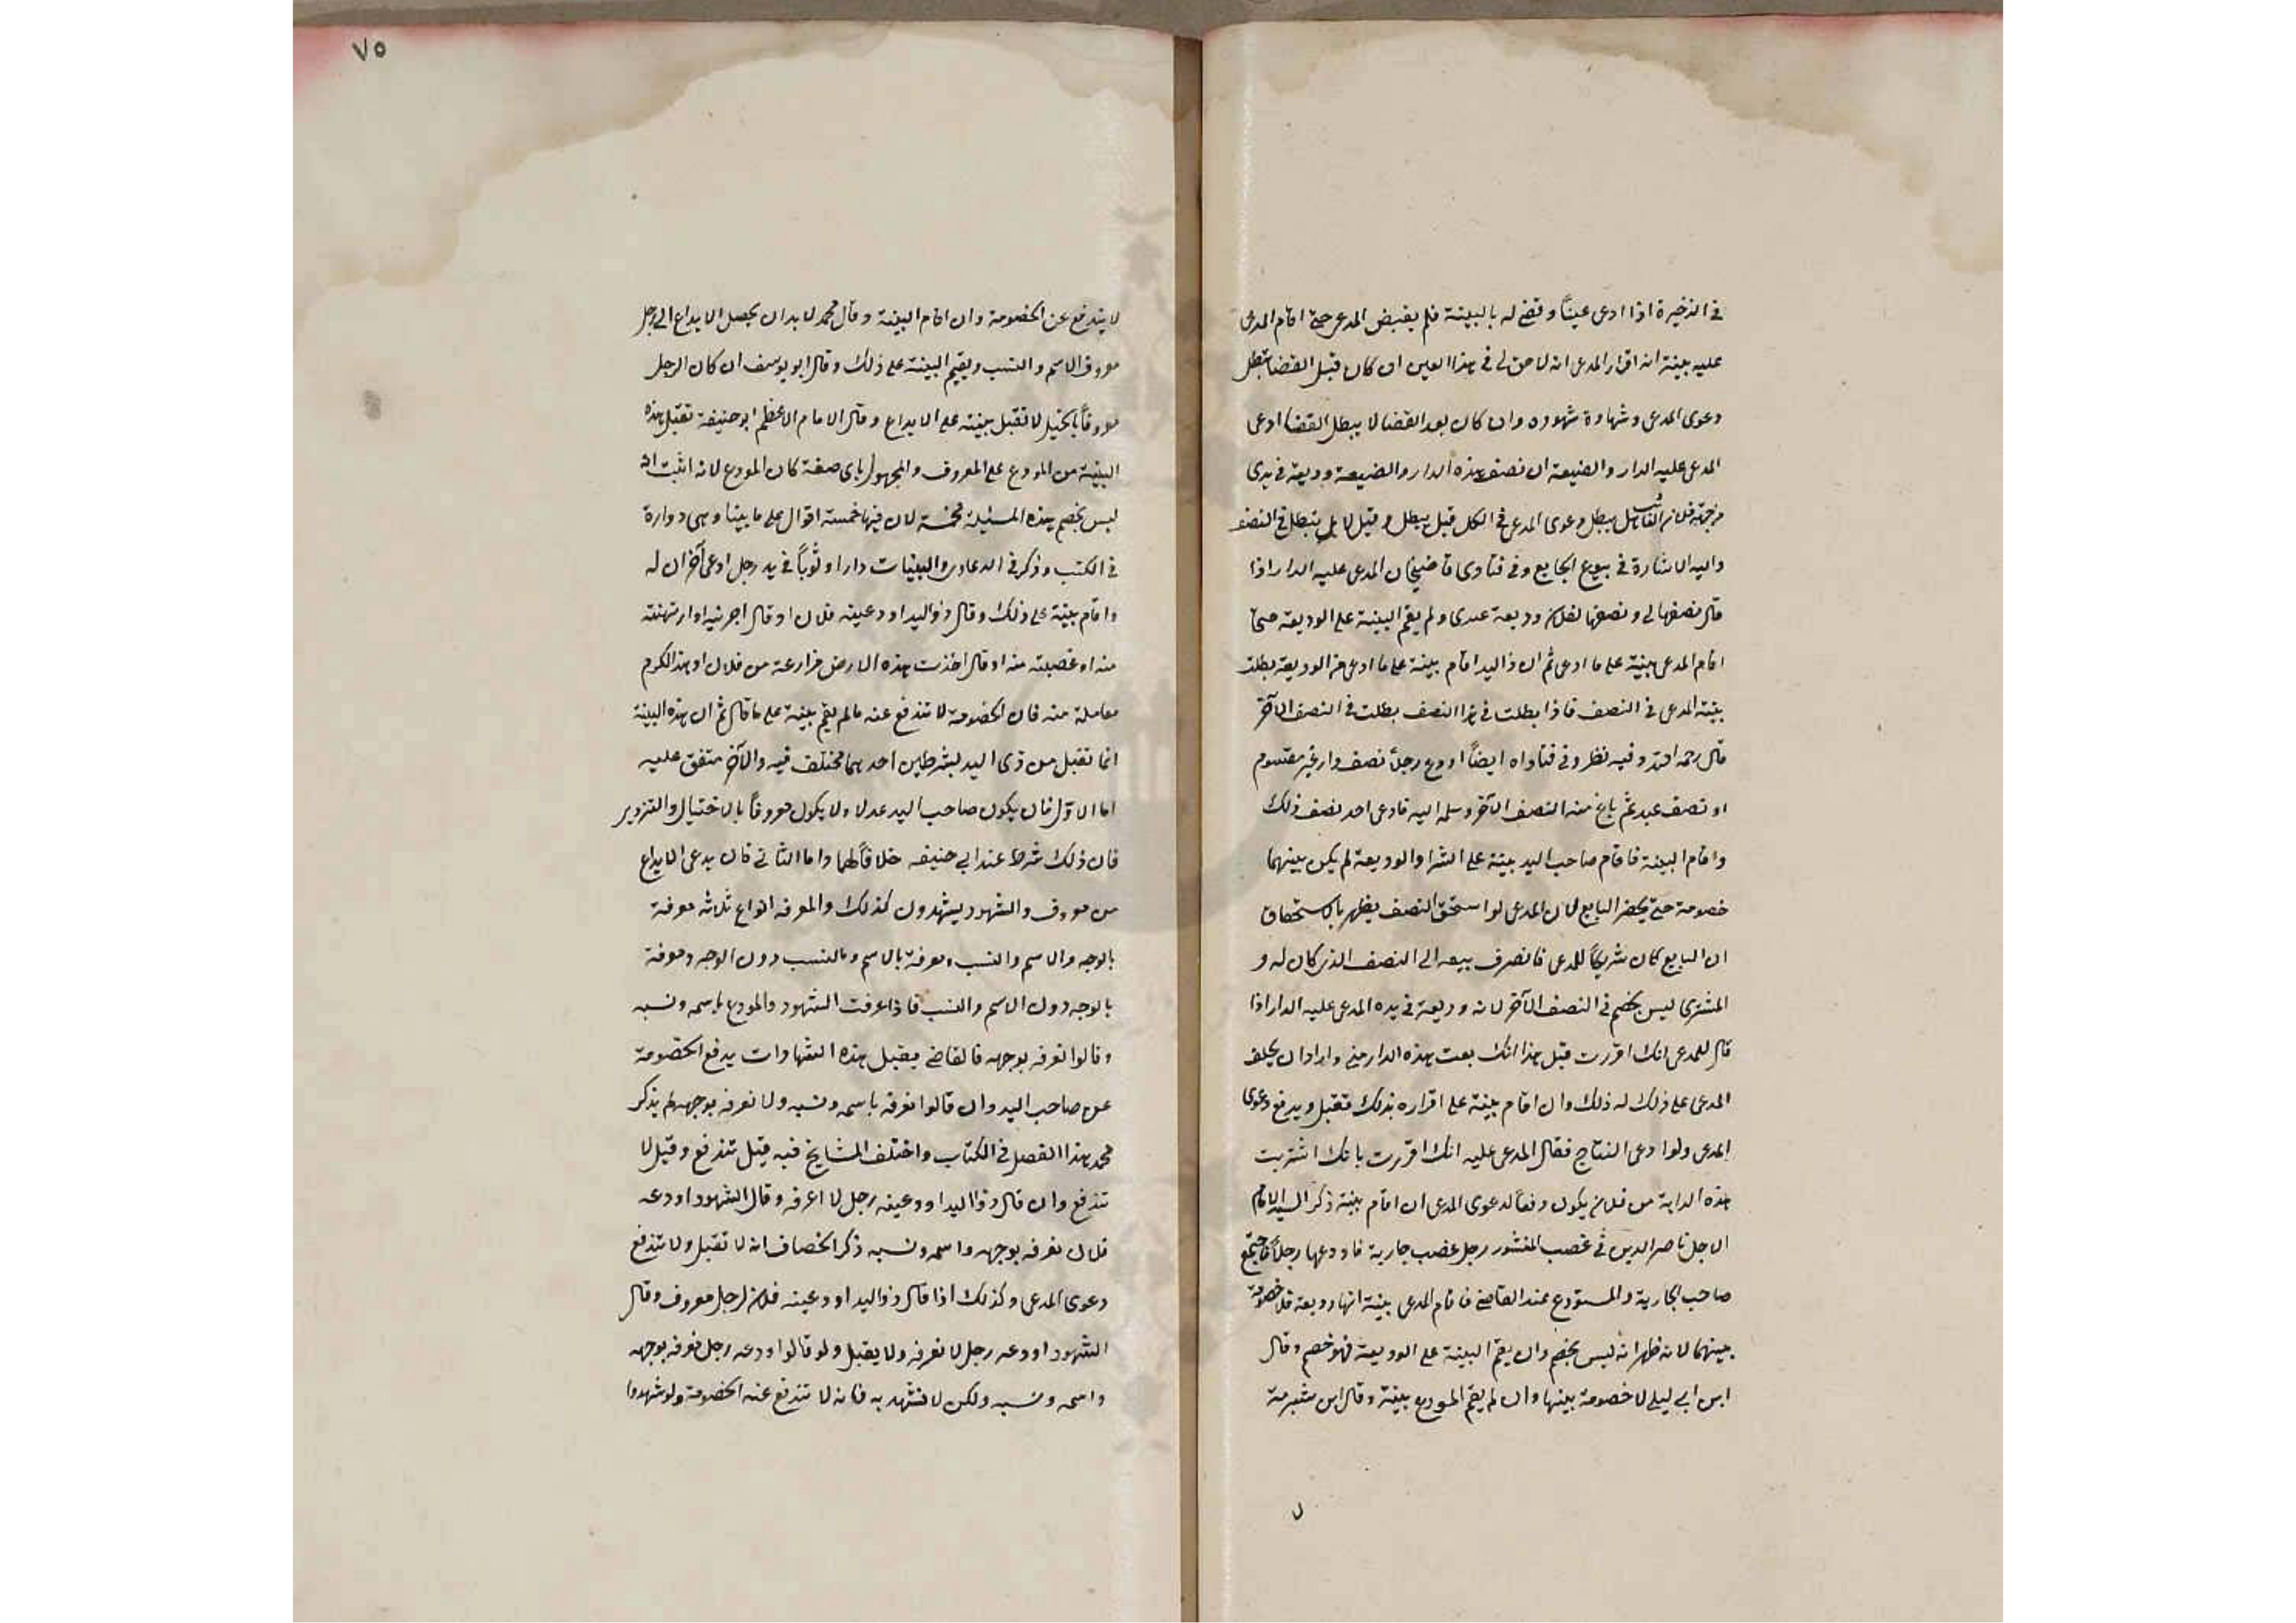 في الذخيرة اذا ادعى عيناً وقضى له بالبينة فلم يقبض المدعى حتى اقام المدعى
عليه بينة انه اقرار المدعى انه لا حق لى في هذا العين ان كان قبل القضا يبطل
دعوى المدعى وشهادة شهوده وان كان بعد القضا لا يبطل القضا ادعى
المدعى عليه الدار والضيعة ان نصف هذه الدار والضيعة وديعة في يدى
من جهة فلان الغائب هل يبطل دعوى المدعى في الكل قيل يبطل وقيل لا بل يبطل في النصف
واليه الاشارة في بيوع الجامع وفي فتاوى قاضيخان المدعى عليه الدار اذا
قال نصفها لي ونصفها لفلان وديعة عندى ولم يقم البينة على الوديعة حتى
اقام المدعى بينة على ما ادعى ثم ان ذا اليد اقام بينة على ما ادعى من الوديعة بطلت
بينة المدعى في النصف فاذا بطلت في هذا النصف بطلت في النصف الآخر
قال رحمه الله وفيه نظر وفي فتاواه ايضاً اودع رجلاً نصف دار غير مقسوم
او نصف عبد ثم باع منه النصف الآخر وسلمه اليه فادعى احد نصف ذلك
واقام البينة فاقام صاحب اليد بينة على الشرا والوديعة لم يكن بينهما
خصومة حتى يحضر البايع لان المدعى لو استحق النصف يظهر بالاستحقاق
ان البايع كان شريكاً للمدعى فانصرف بيعه الى النصف الذى كان له و
المشترى ليس بخصم في النصف الآخر لانه وديعة في يده المدعى عليه الدار اذا
قال للمدعى انك اقررت قبل هذا انك بعت هذه الدار منى واراد ان يحلف
المدعى على ذلك له ذلك وان اقام بينة على اقراره بذلك تقبل ويدفع دعوى
المدعى ولو ادعى النتاج فقال المدعى عليه انك اقررت بانك اشتريت
هذه الدابة من فلان يكون دفعاً لدعوى المدعى ان اقام بينة ذكر السيد الامام
الاجل ناصر الدين في غصب المنشور رجل غصب جارية فاودعها رجلاً فاجتمع
صاحب الجارية والمستودع عند القاضى فاقام المدعى بينة انها وديعة فلا خصومة
بينهما لانه ظهر انه ليس بخصم وان يقم البينة على الوديعة فهو خصم وقال
ابن ابي ليلى لا خصومة بينها وان لم يقم المودع بينة وقال ابن شبرمة
ل
٧٥
لا يندفع عن الخصومة وان اقام البينة وقال محمد لا بد ان يحصل الايداع الى رجل
معروف الاسم والنسب ويقيم البينة على ذلك وقال ابو يوسف ان كان الرجل
معروفاً بالحيل لا تقبل بينته على الايداع وقال الامام الاعظم ابو حنيفة تقبل هذه
البينة من المودع على المعروف والمجهول باى صفة كان المودع لانه اثبت انه
ليس بخصم هذه المسئلة مخمسة لان فيها خمسة اقوال على ما بينا وهى دوارة
في الكتب وذكر في الدعاوى والبينات دار او ثوباً في يد رجل ادعى آخر ان له
واقام بينة على ذلك وقال ذو اليد اودعينه فلان او قال اجرنيه او ارتهنته
منه او غصبته منه او قال اخذت هذه الارض مزارعة من فلان او هذا الكرم
معاملة منه فان الخصومة لا تندفع عنه مالم يقم بينة على ما قال ثم ان هذه البينة
انما تقبل من ذى اليد بشرطين احدهما مختلف فيه والآخر متفق عليه
اما الاول فان يكون صاحب اليد عدلا ولا يكون معروفاً بالاحتيال والتزوير
فان ذلك شرط عند ابي حنيفه خلافاً لهما واما الثانى فان يدعى الايداع
من معروف والشهود يشهدون كذلك والمعرفه انواع ثلاثه معرفة
بالوجه والاسم والنسب ومعرفة بالاسم والنسب دون الوجه ومعرفة
بالوجه دون الاسم والنسب فاذا عرفت الشهود والمودع باسمه ونسبه
وقالوا نعرفه بوجهه فالقاضى يقبل هذه الشهادات يدفع الخصومة
عن صاحب اليد وان قالوا نعرفه باسمه ونسبه ولا نعرفه بوجهه لم يذكر
محمد هذا الفصل في الكتاب واختلف المشايخ فيه قيل تندفع وقيل لا
تندفع وان قال ذو اليد اودعينه رجل لا اعرفه وقال الشهود اودعه
فلان نعرفه بوجهه واسمه ونسبه ذكر الخصاف انه لا تقبل ولا تندفع
دعوى المدعى وكذلك اذا قال ذو اليد اودعينه فلان لرجل معروف وقال
الشهود اودعه رجل لا نعرفه ولا يقبل ولو قالوا اودعه رجل نعرفه بوجهه
واسمه ونسبه ولكن لا نشهد به فانه لا تندفع عنه الخصومة ولو شهدوا